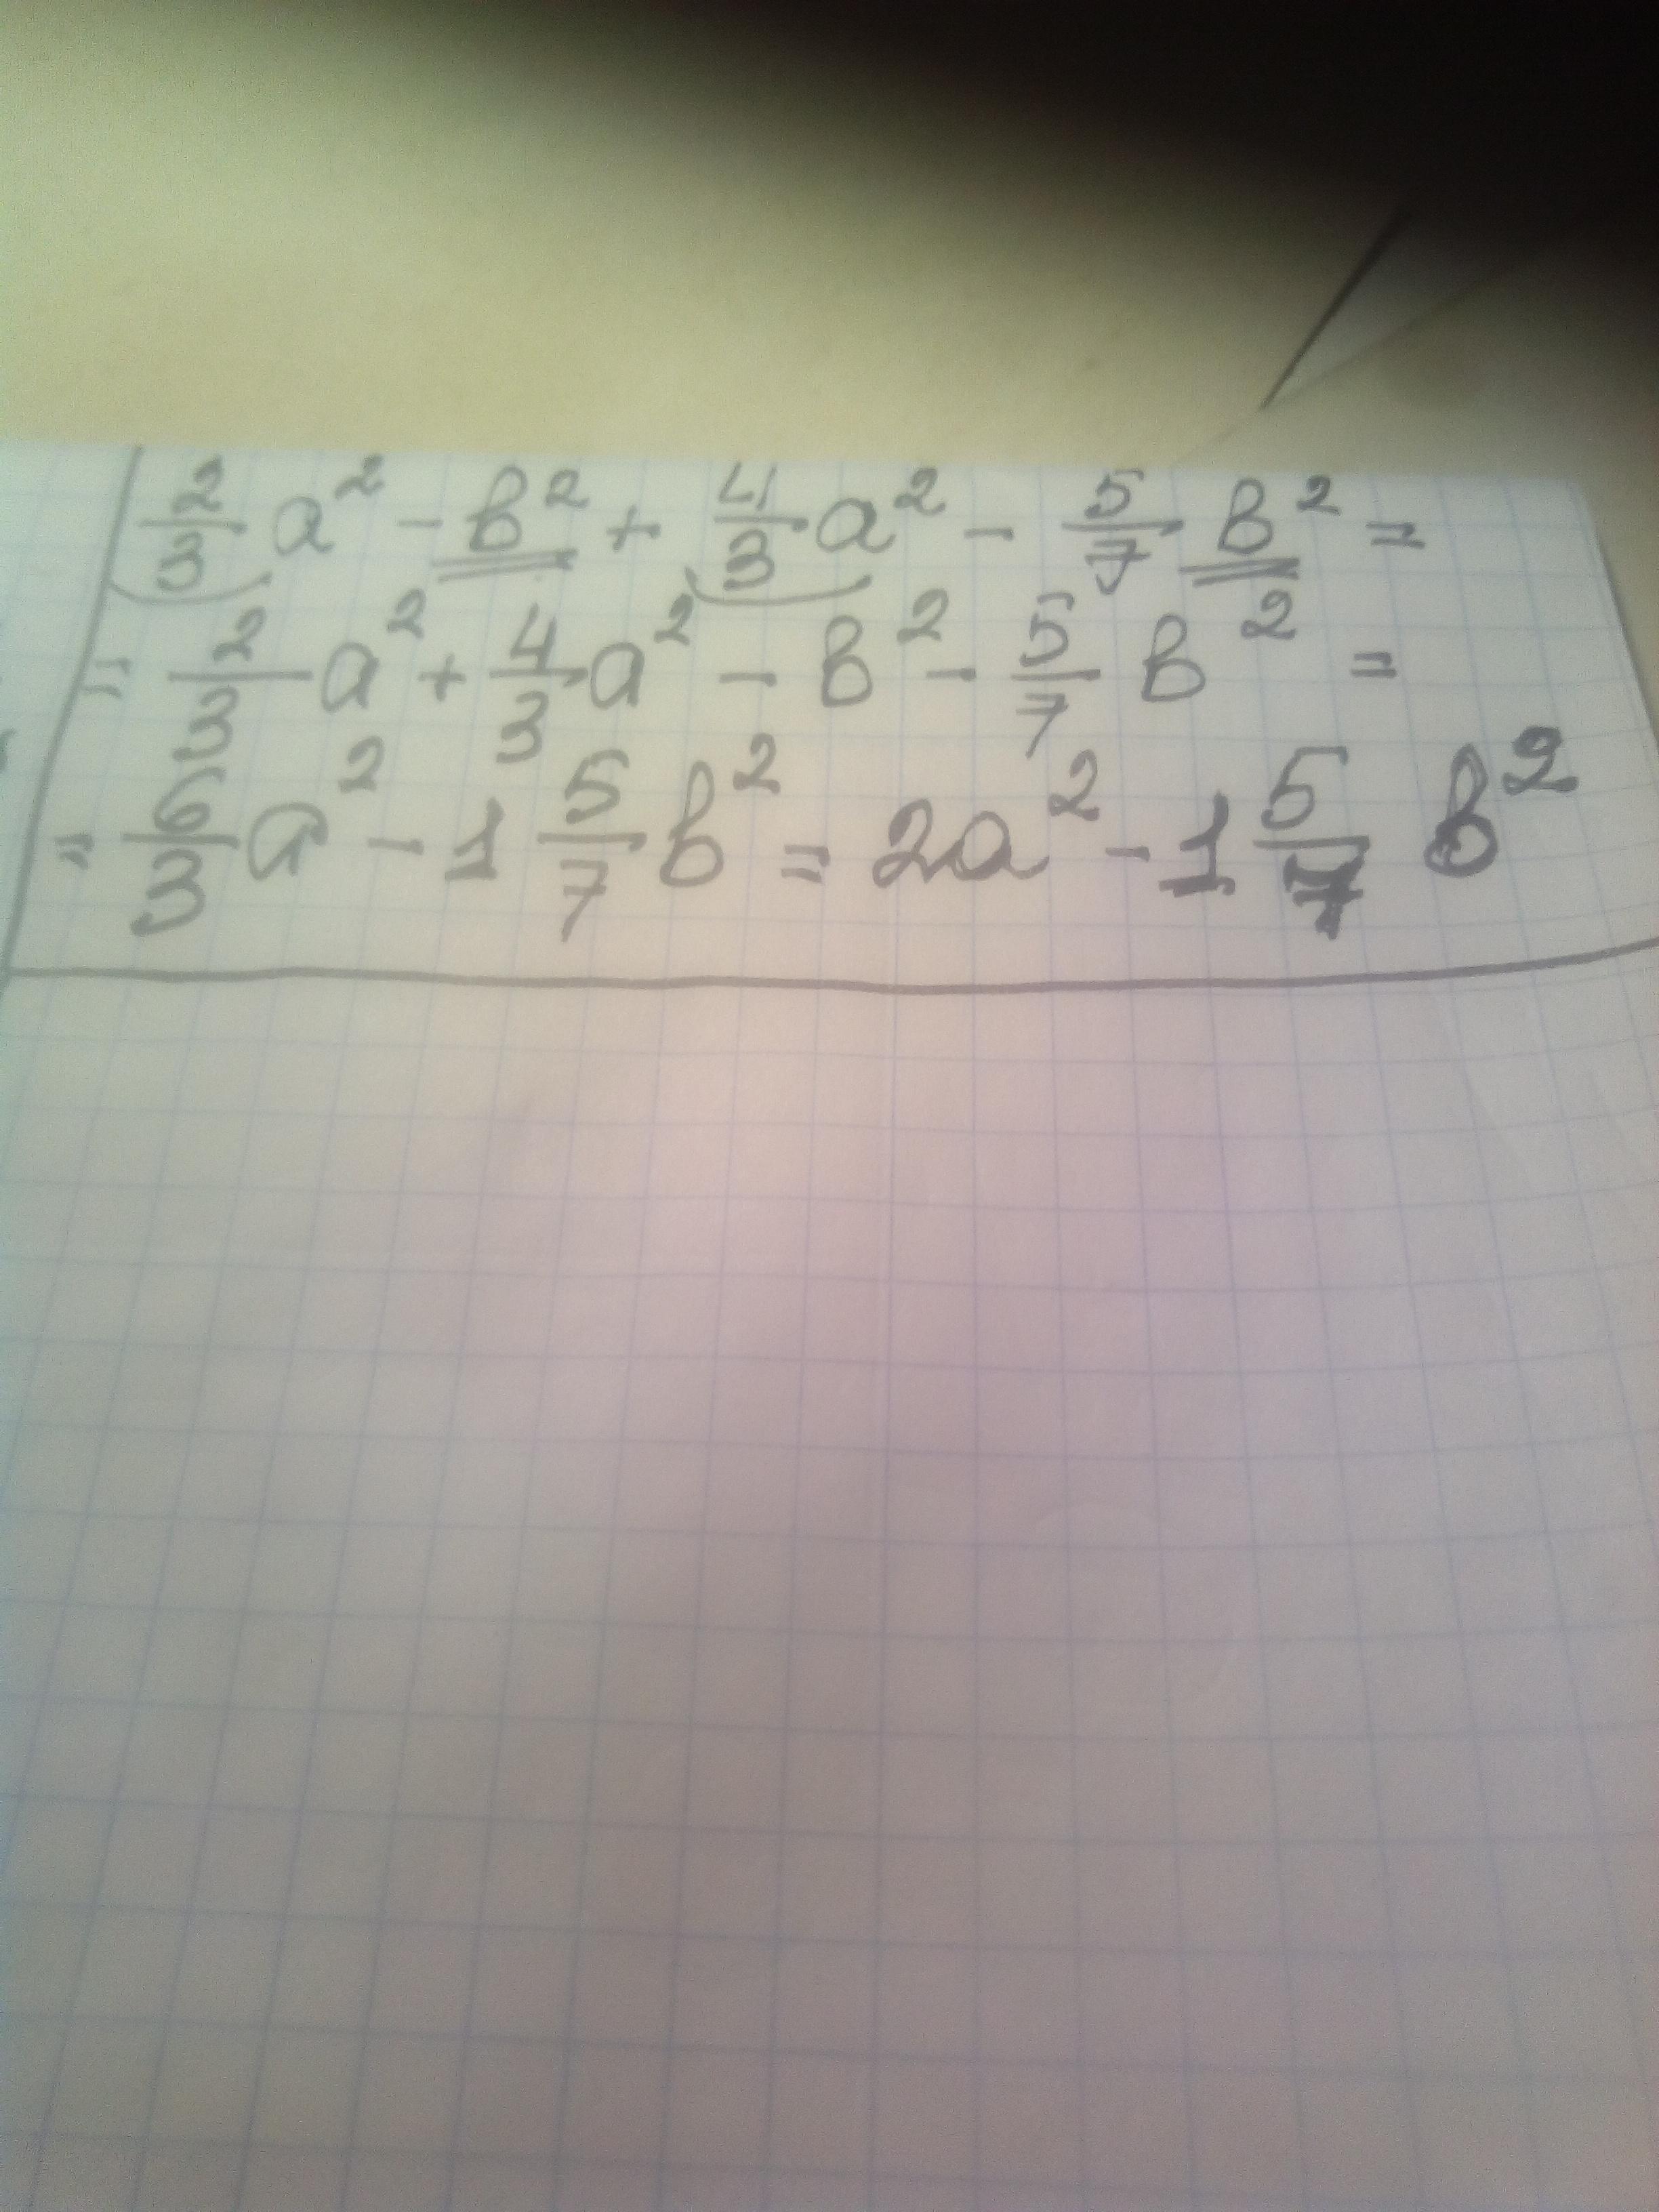 2/3 a² - b² + 4/3 a² - 5/7 b² =
= 2/3 a² + 4/3 a² - b² - 5/7 b² =
= 6/3 a² - 1 5/7 b² = 2a² - 1 5/7 b²